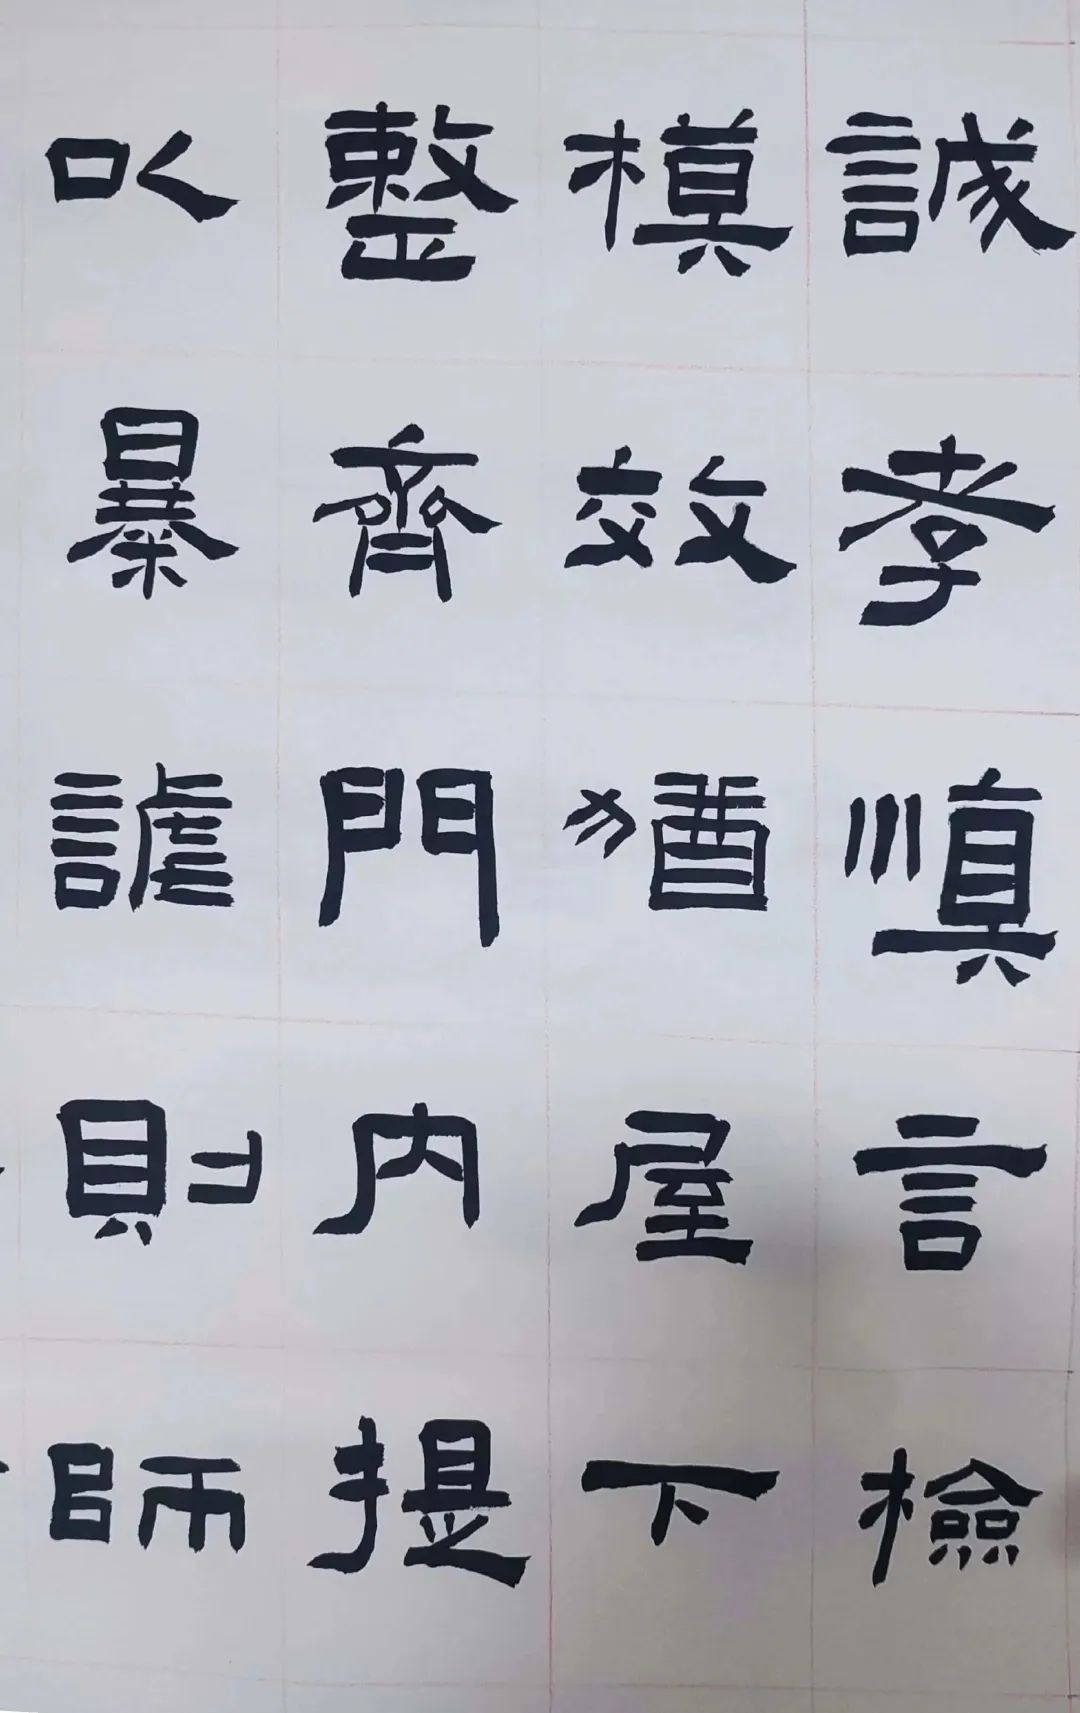 誠孝慎言檢
模效猶屋下
整齊門内提
以暴謔則師